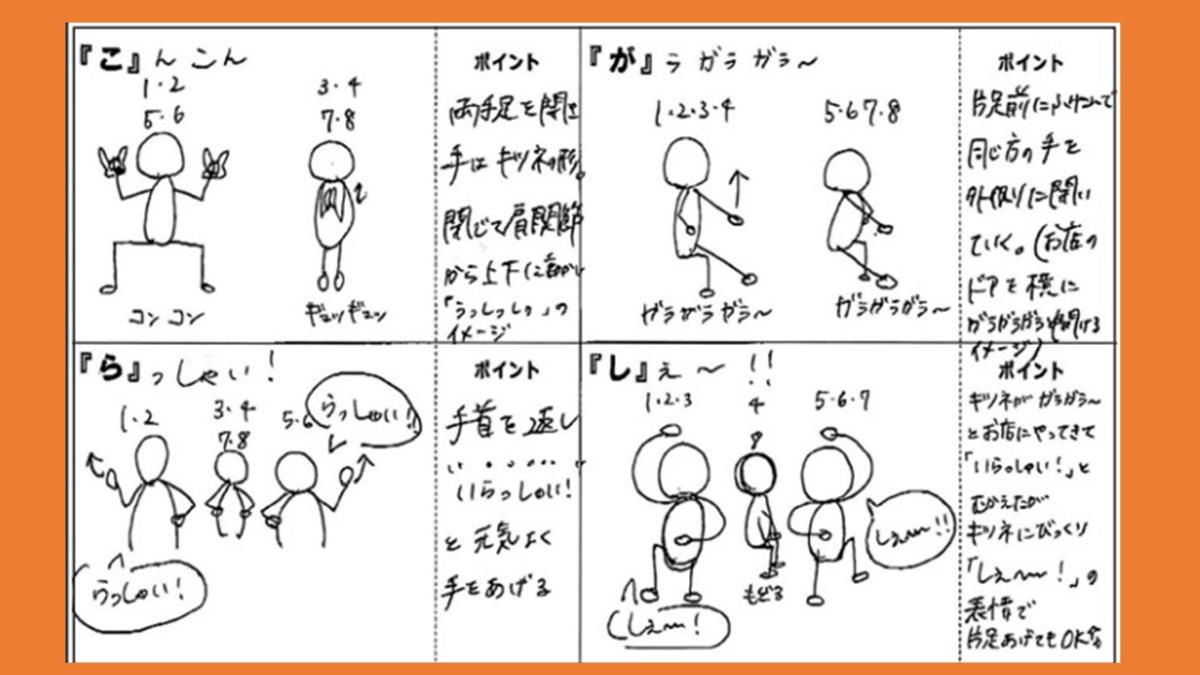 『こ』んこん
1・2
5・6
3・4
7・8
コンコン
ギュッギュッ
ポイント
両手足を開き
手はキツネの形。
閉じて肩関節
から上下に動かし
「うっしっしっ」の
イメージ
『が』ラ ガラ ガラ～
1・2・3・4
5・6 7・8
ガラガラガラ～
ガラガラガラ～
ポイント
片足前にふみこんで
同じ方の手を
外側りに開い
ていく。(お店の
ドアを横に
ガラガラガラと開ける
イメージ)
『ら』っしゃい！
1・2
3・4
7・8
5・6
らっしゃい！
らっしゃい！
ポイント
手首を返し
いらっしゃい！
と元気よく
手をあげる
『し』ぇ～!!
1・2・3
4
8
5・6・7
もどる
しぇ～！
しぇ～!!
ポイント
キツネがガラガラ～
とお店にやってきて
「いらっしゃい！」と
むかえたが
キツネにびっくり
「しぇ～～！」の
表情で
片足あげてもOK